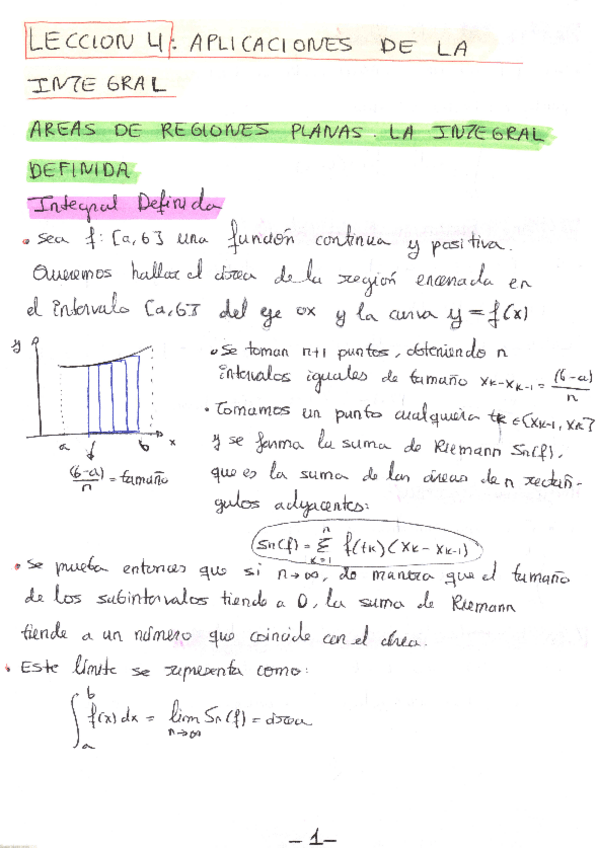 LECCION 4: APLICACIONES DE LA
INTEGRAL
AREAS DE REGIONES PLANAS. LA INTEGRAL
DEFINIDA
Integral Definida
• sea f: [a,b] una función continua y positiva.
Queremos hallar el área de la región encerrada en
el intervalo [a,b] del eje ox y la curva y = f(x)
y
a b x
(b-a)/n = tamaño
• Se toman n+1 puntos, obteniendo n
intervalos iguales de tamaño xk-xk-1 = (b-a)/n
• Tomamos un punto cualquiera tk ∈ [xk-1, xk]
y se forma la suma de Riemann Sn(f),
que es la suma de las áreas de n rectán-
gulos adyacentes:
Sn(f) = Σ_{k=1}^{n} f(tk)(xk - xk-1)
• Se prueba entonces que si n→∞, de manera que el tamaño
de los subintervalos tiende a 0, la suma de Riemann
tiende a un número que coincide con el área.
• Este límite se representa como:
∫_a^b f(x) dx = lim_{n→∞} Sn(f) = área
- 1 -